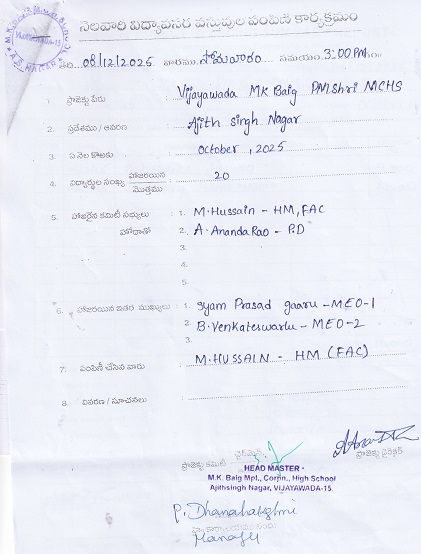 నెలవారి విద్యావసర వస్తువుల పంపిణీ కార్యక్రమం
తేది. 08/12/2025 వారము. సోమవారం సమయం. 3:00 PM
1. ప్రాజెక్టు పేరు : Vijayawada MK Baig PMShri MCHS
2. ప్రదేశము / ఆవరణ : Ajith singh Nagar
3. ఏ నెల కొఱకు : October, 2025
4. విద్యార్థుల సంఖ్య హాజరయిన / మొత్తము : 20
5. హాజరైన కమిటీ సభ్యులు : 1. M. Hussain - HM, FAC
హోదాతో 2. A. Ananda Rao - P.D
3.
4.
5.
6. హాజరయిన ఇతర ముఖ్యులు : 1. Syam Prasad gaaru - MEO-1
2. B. Venkateswarlu - MEO-2
3.
7. పంపిణీ చేసిన వారు : M. HUSSAIN - HM (FAC)
8. వివరణ / సూచనలు :
ప్రాజెక్టు కమిటీ ఛైర్మెన్
ప్రాజెక్ట్ డైరెక్టర్
HEAD MASTER
M.K. Baig Mpl., Corpn., High School
Ajithsingh Nagar, VIJAYAWADA-15.
P. Dhanalakshmi
Manager